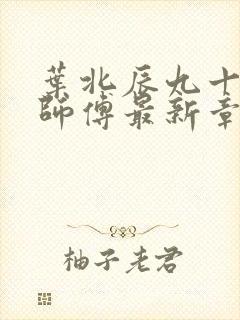 葉北辰九十
師傅最新章
柚子老君